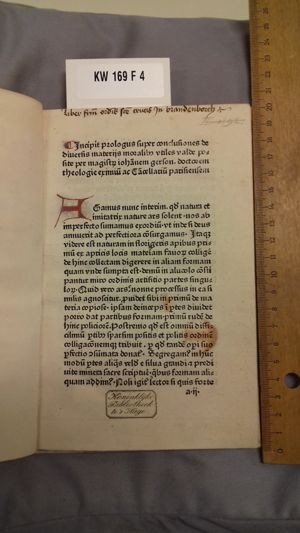 KW 169 F 4
liber frm ordis sce crucis In brandenborch
Incipit prologus super conclusiones de
diuersis materijs moralibꝰ vtiles valde posi
te per magistꝝ iohãnem gerson. doctorem
theologie eximiũ ac Cãcellariũ parisiensem
AGamus nunc interim. qd natura et
imitatrix nature ars solent. nos ab
imperfecto sumamus exordiũ vt inde si deus
annuerit ad perfectiora cõsurgamus. Itaqꝫ
videre est naturam in florigeris apibus primũ
ex apticis locis materiam fauoꝝ collige
de hinc collectam digerere in aliam formam
quam vnde sumpta est. demũ in alueolo cõsti
pantur miro ordinis artificio partes singu
loꝝ. Quid vero ars. nonne processus in ea si
milis agnoscitur. prouidet sibi primũ de ma
teria copiose. ipsam deinceps ptes diuidet
porro dat partibus formam. primũ rudẽ de
hinc policiorẽ. Postremo qd est omniũ diffi
cilimũ ptibꝰ sparsim positis et politis ordinẽ
colligacionẽmqꝫ tribuit. ꝑ qd tandẽ opꝰ su
pfectio plumata donat. Segregam in hũc
modũ ptes aliqs velđ e silua grandi et pro
duite mineta sacre scripture. qbus formam ali
quam addim. Nosigit lector si quis forte
a.ij.
Koninklijke
Bibliotheek
te's Hage